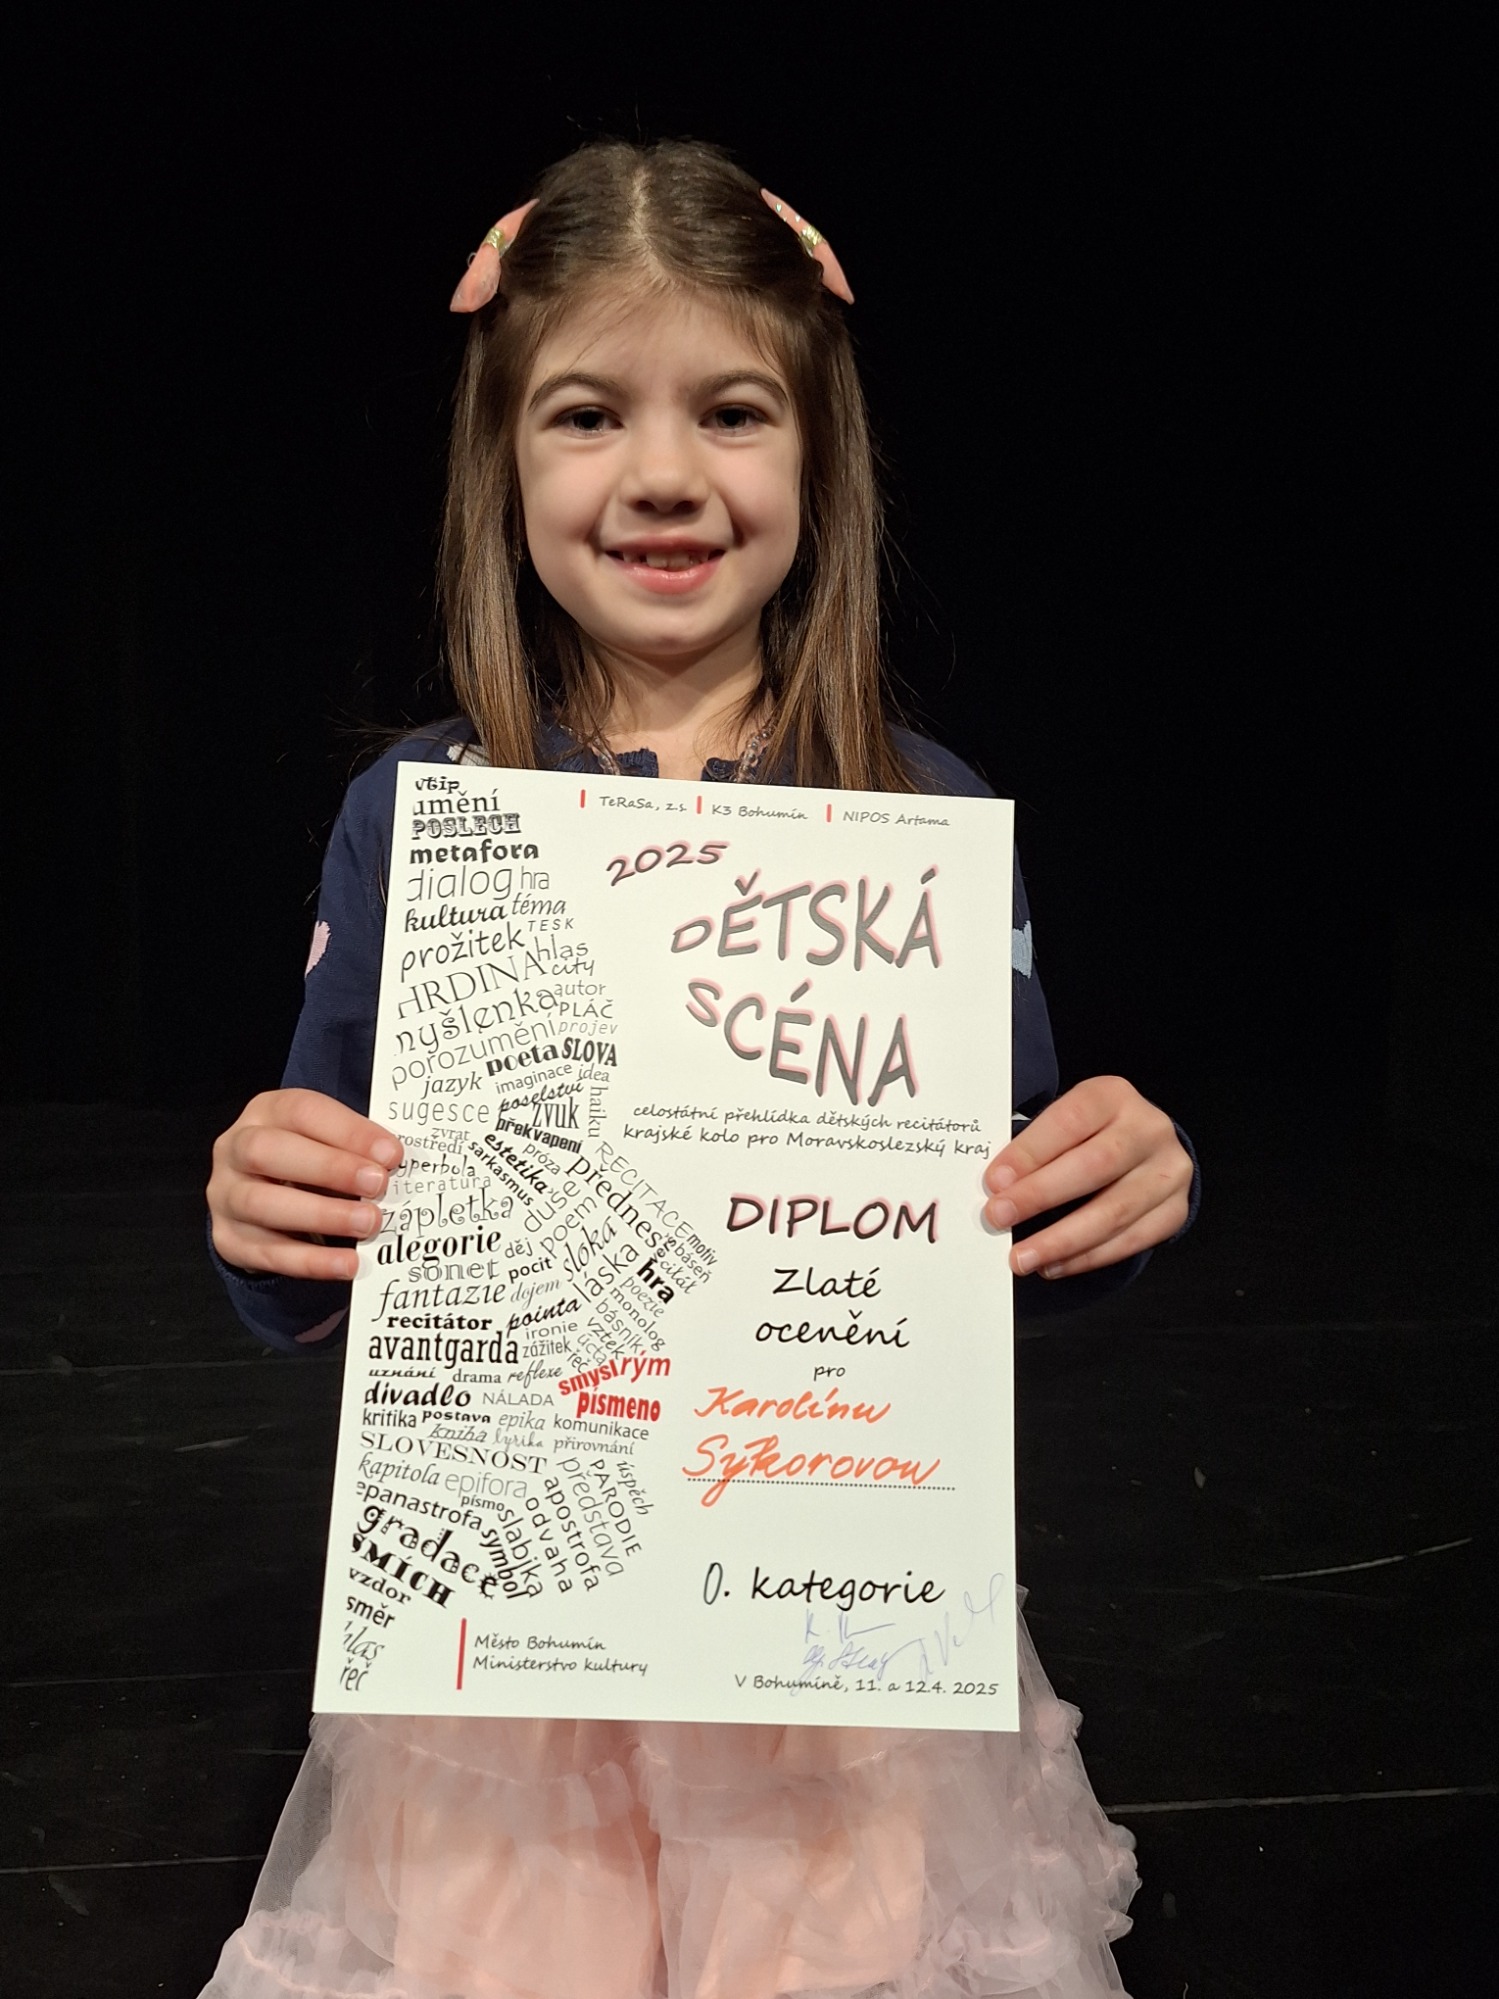 TeRaSa, z.s. K3 Bohumín NIPOS Artama
2025
DĚTSKÁ
SCÉNA
celostátní přehlídka dětských recitátorů
krajské kolo pro Moravskoslezský kraj
DIPLOM
Zlaté
ocenění
pro
Karolínu
Sýkorovou
0. kategorie
V Bohumíně, 11. a 12.4. 2025
Město Bohumín
Ministerstvo kultury
vtip
umění
POSLECH
metafora
dialog hra
kultura téma
prožitek TESK
HRDINA hlas
city
myšlenka autor
PLÁČ
porozumění projev
jazyk poeta SLOVA
imaginace idea
sugesce poselství haiku
zvuk
zvrat překvapení
prostředí estetika próza RECITACE
hyperbola sarkasmus přednes
literatura duše motiv
zápletka poem báseň
alegorie děj sloka citát
sonet pocit láska hra
fantazie dojem poezie
recitátor pointa monolog
avantgarda ironie básník
zážitek vztek
uznání drama reflexe řeč účta
smysl rým
divadlo NÁLADA písmeno
kritika postava epika komunikace
kniha lyrika přirovnání
SLOVESNOST
kapitola epifora představa PARODIE úspěch
epanastrofa písmo apostrofa
gradace symbol slabika odvaha
SMÍCH
vzdor
směr
hlas
řeč